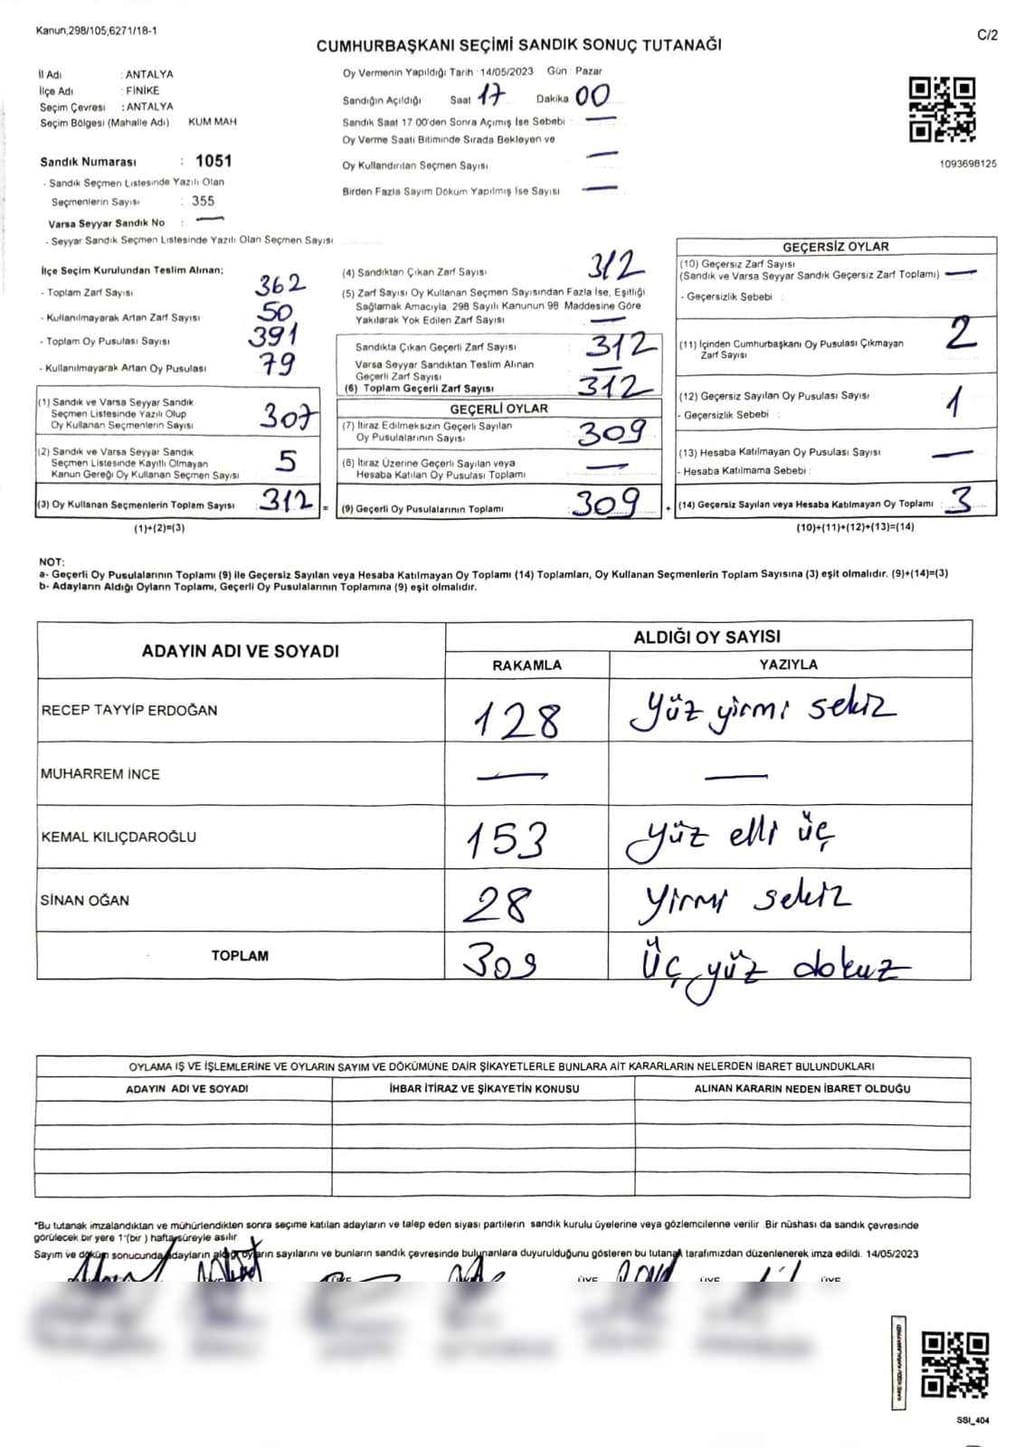 Kanun,298/105,6271/18-1
C/2
CUMHURBAŞKANI SEÇİMİ SANDIK SONUÇ TUTANAĞI
İl Adı : ANTALYA
İlçe Adı : FİNİKE
Seçim Çevresi : ANTALYA
Seçim Bölgesi (Mahalle Adı) KUM MAH
Sandık Numarası : 1051
- Sandık Seçmen Listesinde Yazılı Olan
Seçmenlerin Sayısı : 355
Varsa Seyyar Sandık No : —
- Seyyar Sandık Seçmen Listesinde Yazılı Olan Seçmen Sayısı
Oy Vermenin Yapıldığı Tarih : 14/05/2023 Gün : Pazar
Sandığın Açıldığı Saat 17 Dakika 00
Sandık Saat 17 00'den Sonra Açımış İse Sebebi : —
Oy Verme Saati Bitiminde Sırada Bekleyen ve
Oy Kullandırılan Seçmen Sayısı —
Birden Fazla Sayım Döküm Yapılmış İse Sayısı —
1093698125
İlçe Seçim Kurulundan Teslim Alınan;
- Toplam Zarf Sayısı : 362
- Kullanılmayarak Artan Zarf Sayısı : 50
- Toplam Oy Pusulası Sayısı : 391
- Kullanılmayarak Artan Oy Pusulası : 79
(1) Sandık ve Varsa Seyyar Sandık
Seçmen Listesinde Yazılı Olup
Oy Kullanan Seçmenlerin Sayısı : 307
(2) Sandık ve Varsa Seyyar Sandık
Seçmen Listesinde Kayıtlı Olmayan
Kanun Gereği Oy Kullanan Seçmen Sayısı : 5
(3) Oy Kullanan Seçmenlerin Toplam Sayısı : 312 =
(1)+(2)=(3)
(4) Sandıktan Çıkan Zarf Sayısı : 312
(5) Zarf Sayısı Oy Kullanan Seçmen Sayısından Fazla İse, Eşitliği
Sağlamak Amacıyla, 298 Sayılı Kanunun 98 Maddesine Göre
Yakılarak Yok Edilen Zarf Sayısı : —
Sandıkta Çıkan Geçerli Zarf Sayısı : 312
Varsa Seyyar Sandıktan Teslim Alınan
Geçerli Zarf Sayısı : —
(6) Toplam Geçerli Zarf Sayısı : 312
GEÇERLİ OYLAR
(7) İtiraz Edilmeksizin Geçerli Sayılan
Oy Pusulalarının Sayısı : 309
(8) İtiraz Üzerine Geçerli Sayılan veya
Hesaba Katılan Oy Pusulası Toplamı : —
(9) Geçerli Oy Pusulalarının Toplamı : 309 +
GEÇERSİZ OYLAR
(10) Geçersiz Zarf Sayısı
(Sandık ve Varsa Seyyar Sandık Geçersiz Zarf Toplamı) : —
- Geçersizlik Sebebi :
(11) İçinden Cumhurbaşkanı Oy Pusulası Çıkmayan
Zarf Sayısı : 2
(12) Geçersiz Sayılan Oy Pusulası Sayısı : 1
- Geçersizlik Sebebi :
(13) Hesaba Katılmayan Oy Pusulası Sayısı : —
- Hesaba Katılmama Sebebi :
(14) Geçersiz Sayılan veya Hesaba Katılmayan Oy Toplamı : 3
(10)+(11)+(12)+(13)=(14)
NOT:
a- Geçerli Oy Pusulalarının Toplamı (9) ile Geçersiz Sayılan veya Hesaba Katılmayan Oy Toplamı (14) Toplamları, Oy Kullanan Seçmenlerin Toplam Sayısına (3) eşit olmalıdır. (9)+(14)=(3)
b- Adayların Aldığı Oyların Toplamı, Geçerli Oy Pusulalarının Toplamına (9) eşit olmalıdır.
ADAYIN ADI VE SOYADI ALDIĞI OY SAYISI
RAKAMLA YAZIYLA
RECEP TAYYİP ERDOĞAN 128 yüz yirmi sekiz
MUHARREM İNCE — —
KEMAL KILIÇDAROĞLU 153 yüz elli üç
SİNAN OĞAN 28 yirmi sekiz
TOPLAM 309 üç yüz dokuz
OYLAMA İŞ VE İŞLEMLERİNE VE OYLARIN SAYIM VE DÖKÜMÜNE DAİR ŞİKAYETLERLE BUNLARA AİT KARARLARIN NELERDEN İBARET BULUNDUKLARI
ADAYIN ADI VE SOYADI İHBAR İTİRAZ VE ŞİKAYETİN KONUSU ALINAN KARARIN NEDEN İBARET OLDUĞU
*Bu tutanak imzalandıktan ve mühürlendikten sonra seçime katılan adayların ve talep eden siyasi partilerin sandık kurulu üyelerine veya gözlemcilerine verilir. Bir nüshası da sandık çevresinde
görülecek bir yere 1 (bir ) hafta süreyle asılır.
Sayım ve döküm sonucunda adayların aldığı oyların sayılarını ve bunların sandık çevresinde bulunanlara duyurulduğunu gösteren bu tutanak tarafımızdan düzenlenerek imza edildi. 14/05/2023
ÜYE ÜYE ÜYE ÜYE
SSI_404